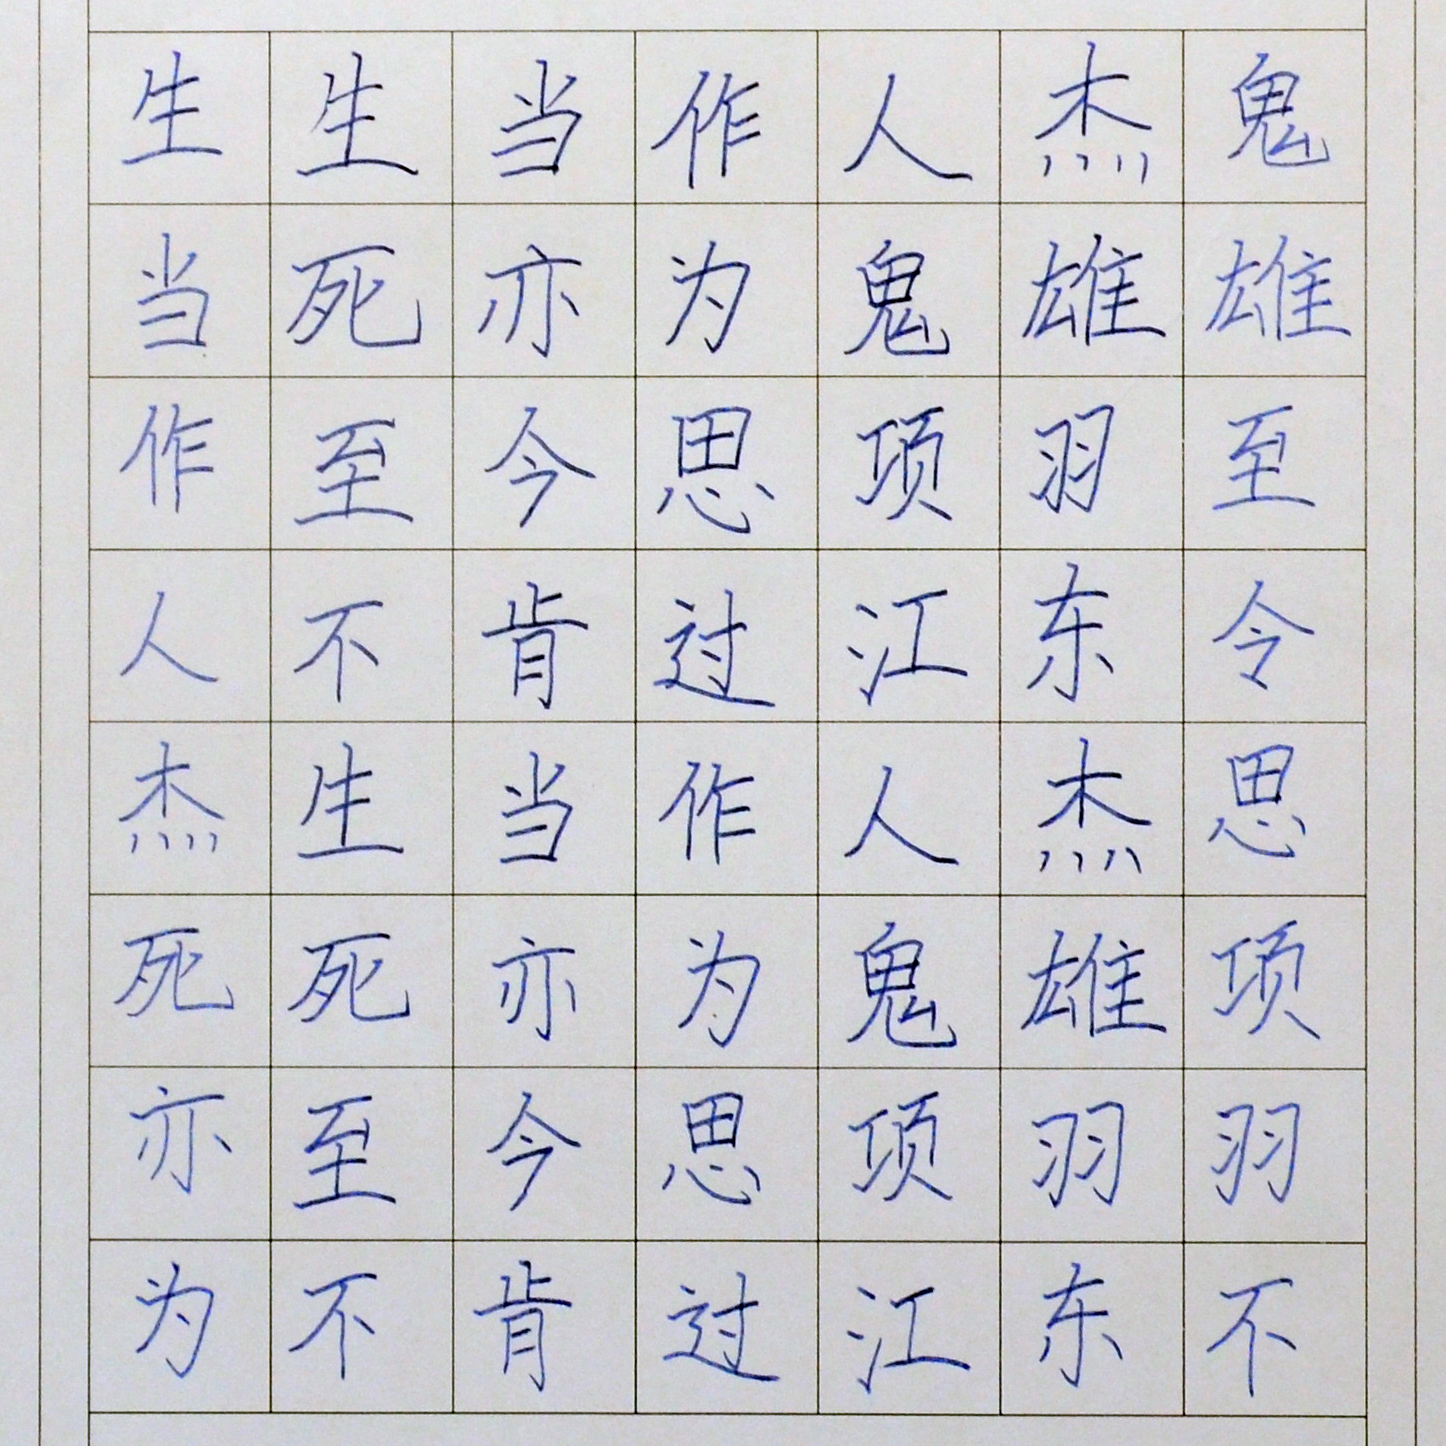 生生当作人杰鬼
当死亦为鬼雄雄
作至今思项羽至
人不肯过江东令
杰生当作人杰思
死死亦为鬼雄项
亦至今思项羽羽
为不肯过江东不